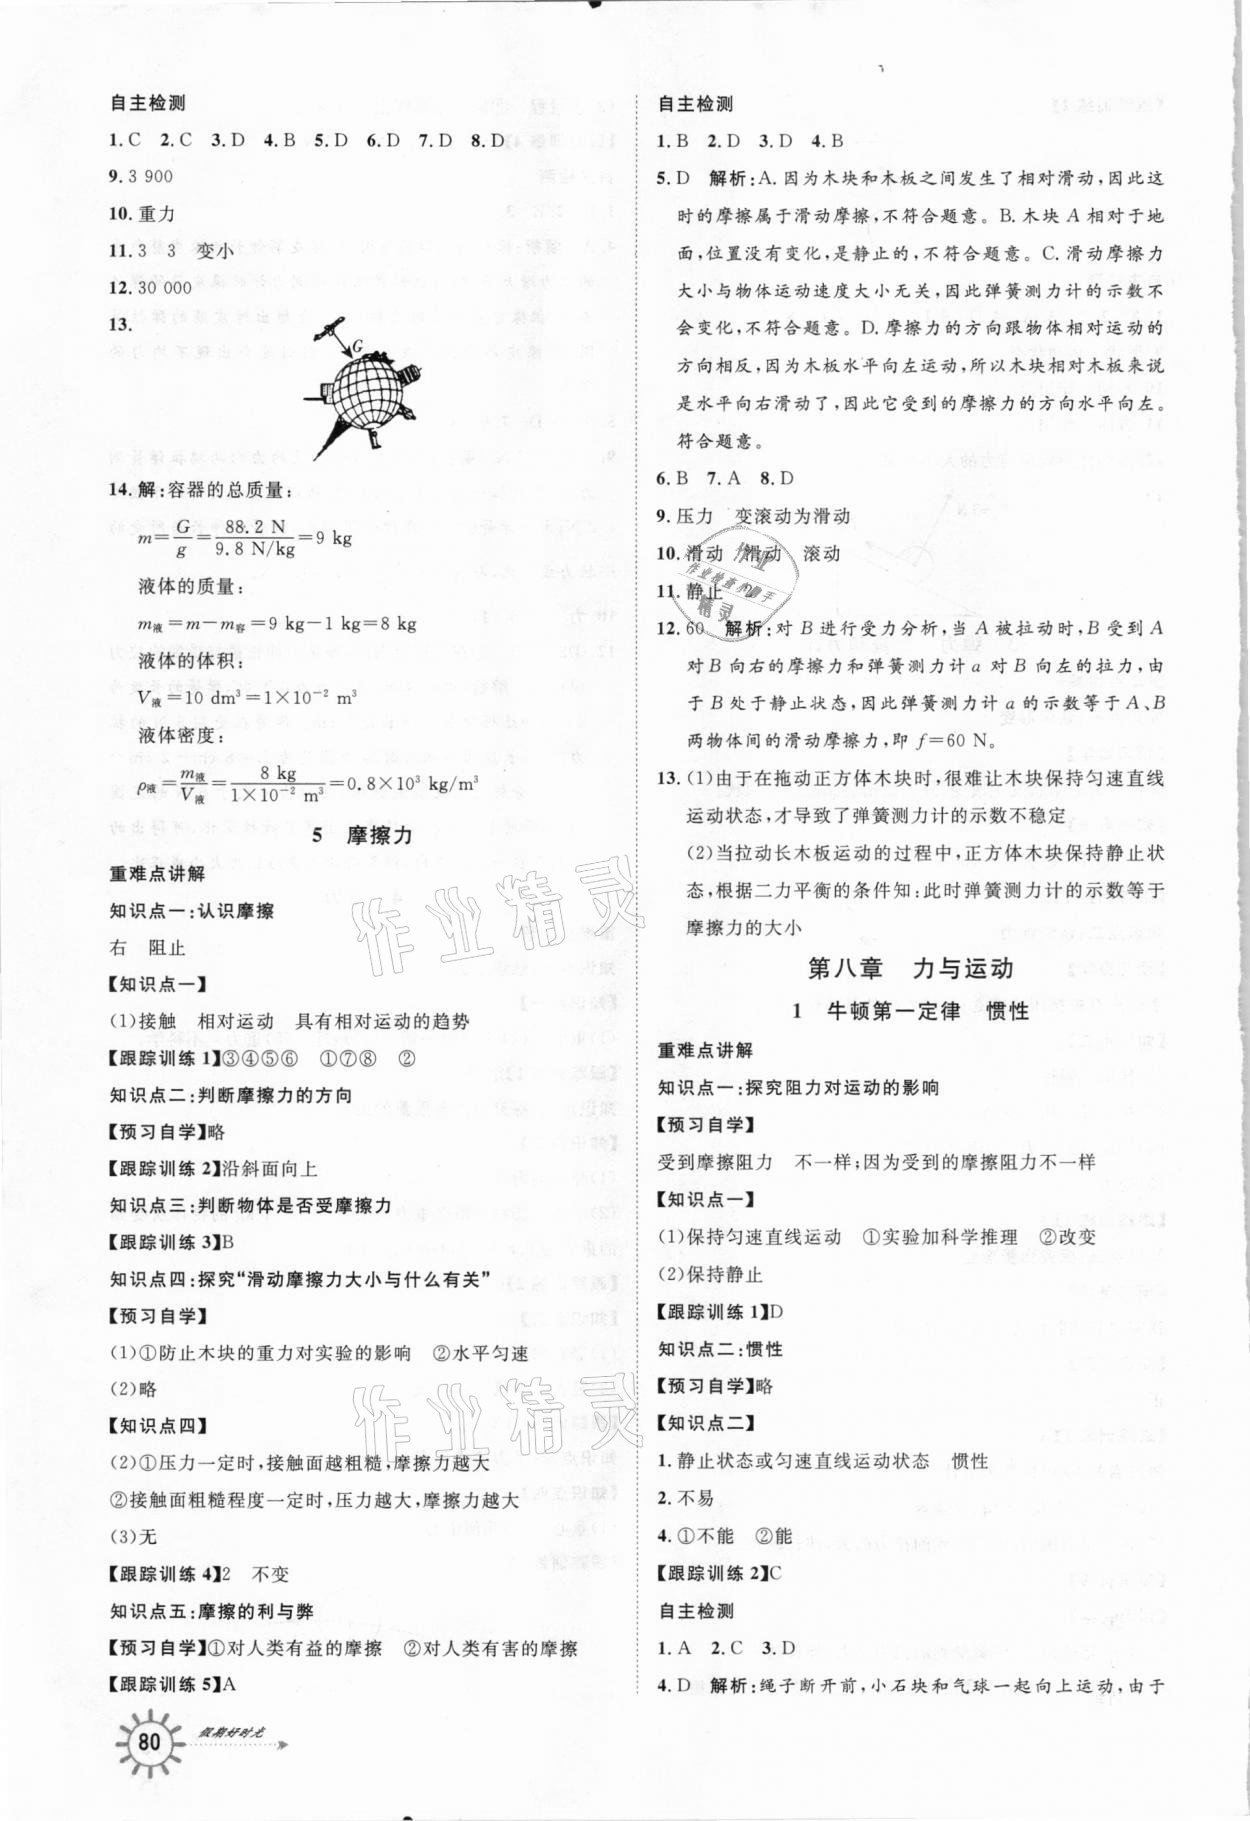 自主检测
1.C 2.C 3.D 4.B 5.D 6.D 7.D 8.D
9.3 900
10.重力
11.3 3 变小
12.30 000
13.
G
14.解:容器的总质量:
m=G/g=88.2 N/9.8 N/kg=9 kg
液体的质量:
m液=m-m容=9 kg-1 kg=8 kg
液体的体积:
V液=10 dm³=1×10⁻² m³
液体密度:
ρ液=m液/V液=8 kg/1×10⁻² m³=0.8×10³ kg/m³
5 摩擦力
重难点讲解
知识点一:认识摩擦
右 阻止
【知识点一】
(1)接触 相对运动 具有相对运动的趋势
【跟踪训练1】③④⑤⑥ ①⑦⑧ ②
知识点二:判断摩擦力的方向
【预习自学】略
【跟踪训练2】沿斜面向上
知识点三:判断物体是否受摩擦力
【跟踪训练3】B
知识点四:探究“滑动摩擦力大小与什么有关”
【预习自学】
(1)①防止木块的重力对实验的影响 ②水平匀速
(2)略
【知识点四】
(2)①压力一定时,接触面越粗糙,摩擦力越大
②接触面粗糙程度一定时,压力越大,摩擦力越大
(3)无
【跟踪训练4】2 不变
知识点五:摩擦的利与弊
【预习自学】①对人类有益的摩擦 ②对人类有害的摩擦
【跟踪训练5】A
80 假期好时光
自主检测
1.B 2.D 3.D 4.B
5.D 解析:A.因为木块和木板之间发生了相对滑动,因此这
时的摩擦属于滑动摩擦,不符合题意。B.木块A相对于地
面,位置没有变化,是静止的,不符合题意。C.滑动摩擦力
大小与物体运动速度大小无关,因此弹簧测力计的示数不
会变化,不符合题意。D.摩擦力的方向跟物体相对运动的
方向相反,因为木板水平向左运动,所以木块相对木板来说
是水平向右滑动了,因此它受到的摩擦力的方向水平向左。
符合题意。
6.B 7.A 8.D
9.压力 变滚动为滑动
10.滑动 滑动 滚动
11.静止 2
12.60 解析:对B进行受力分析,当A被拉动时,B受到A
对B向右的摩擦力和弹簧测力计a对B向左的拉力,由
于B处于静止状态,因此弹簧测力计a的示数等于A、B
两物体间的滑动摩擦力,即f=60 N。
13.(1)由于在拖动正方体木块时,很难让木块保持匀速直线
运动状态,才导致了弹簧测力计的示数不稳定
(2)当拉动长木板运动的过程中,正方体木块保持静止状
态,根据二力平衡的条件知:此时弹簧测力计的示数等于
摩擦力的大小
第八章 力与运动
1 牛顿第一定律 惯性
重难点讲解
知识点一:探究阻力对运动的影响
【预习自学】
受到摩擦阻力 不一样;因为受到的摩擦阻力不一样
【知识点一】
(1)保持匀速直线运动 ①实验加科学推理 ②改变
(2)保持静止
【跟踪训练1】D
知识点二:惯性
【预习自学】略
【知识点二】
1.静止状态或匀速直线运动状态 惯性
2.不易
4.①不能 ②能
【跟踪训练2】C
自主检测
1.A 2.C 3.D
4.D 解析:绳子断开前,小石块和气球一起向上运动,由于
作业
作业检查小助手
精灵
作业精灵
作业精灵